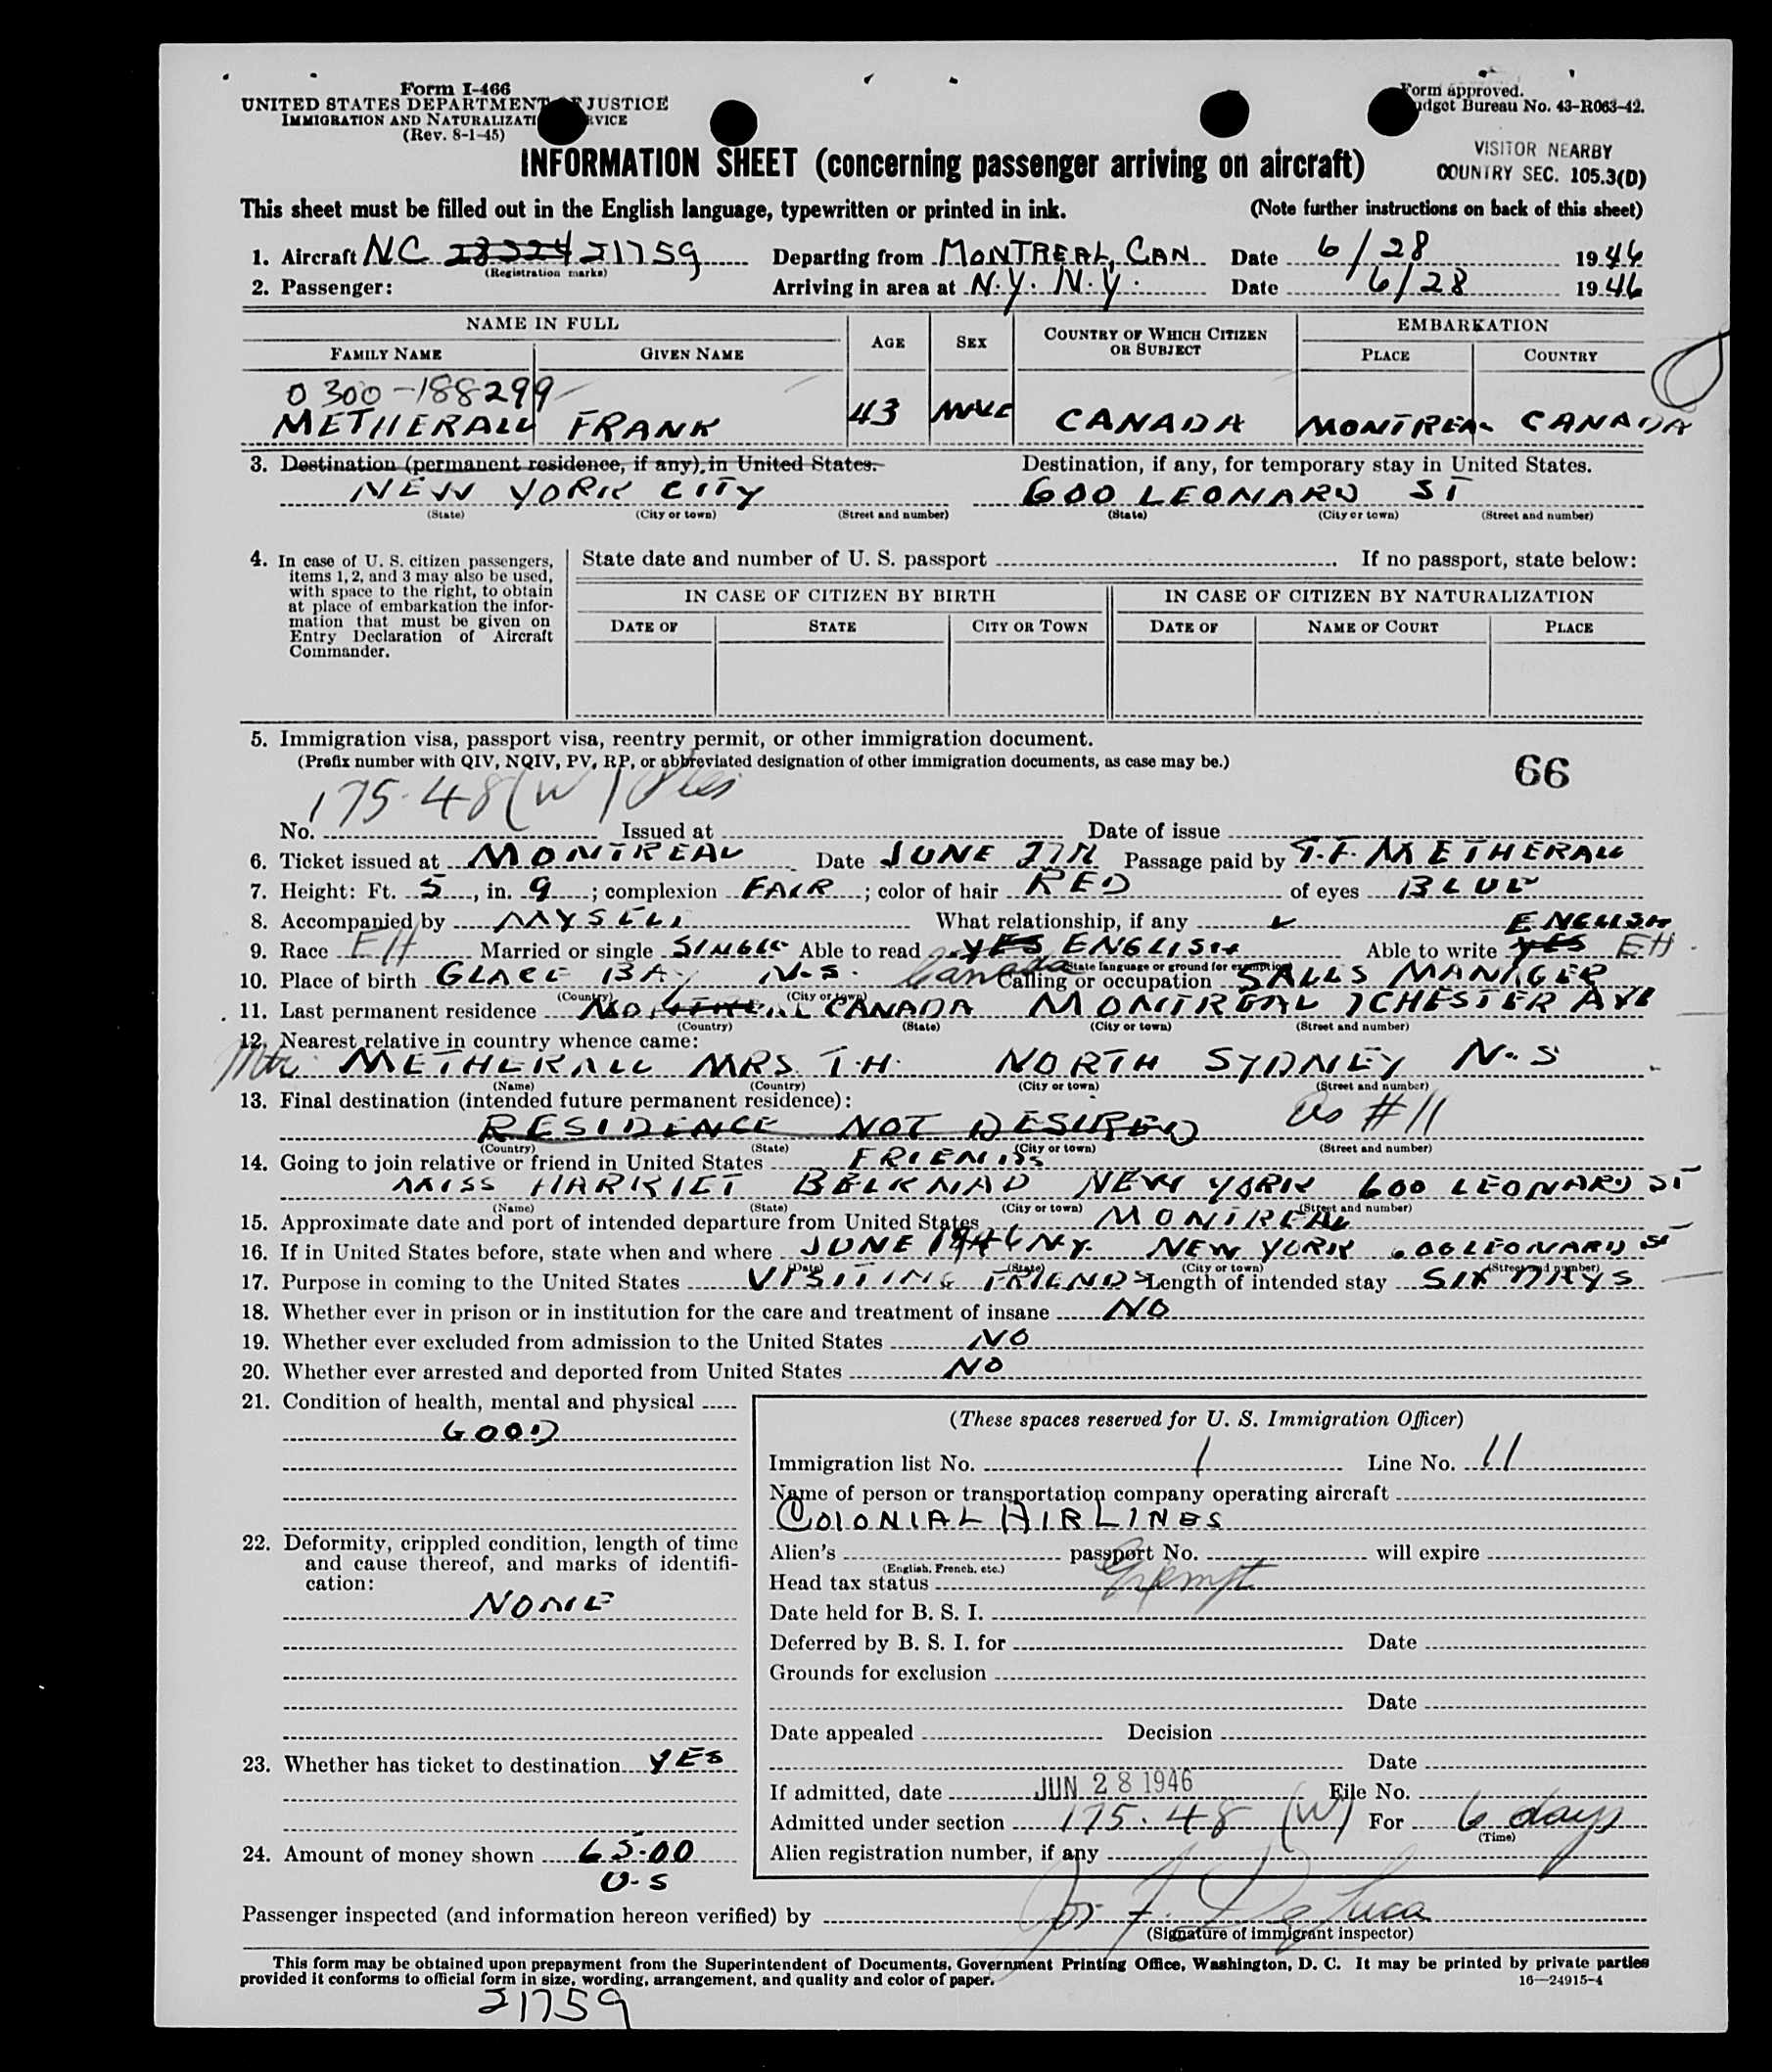 Form I-466
UNITED STATES DEPARTMENT OF JUSTICE
IMMIGRATION AND NATURALIZATION SERVICE
(Rev. 8-1-45)
Form approved.
Budget Bureau No. 43-R063-42.
VISITOR NEARBY
COUNTRY SEC. 105.3(D)
INFORMATION SHEET (concerning passenger arriving on aircraft)
This sheet must be filled out in the English language, typewritten or printed in ink. (Note further instructions on back of this sheet)
1. Aircraft NC 28324 21759 Departing from MONTREAL, CAN Date 6/28 1946
(Registration marks)
2. Passenger: Arriving in area at N.Y. N.Y. Date 6/28 1946
NAME IN FULL AGE SEX COUNTRY OF WHICH CITIZEN OR SUBJECT EMBARKATION
FAMILY NAME GIVEN NAME PLACE COUNTRY
0300-188299
METHERALL FRANK 43 MALE CANADA MONTREAL CANADA
3. Destination (permanent residence, if any), in United States. Destination, if any, for temporary stay in United States.
NEW YORK CITY 600 LEONARD ST
(State) (City or town) (Street and number) (State) (City or town) (Street and number)
4. In case of U. S. citizen passengers, items 1, 2, and 3 may also be used, with space to the right, to obtain at place of embarkation the information that must be given on Entry Declaration of Aircraft Commander.
State date and number of U. S. passport If no passport, state below:
IN CASE OF CITIZEN BY BIRTH IN CASE OF CITIZEN BY NATURALIZATION
DATE OF STATE CITY OR TOWN DATE OF NAME OF COURT PLACE
5. Immigration visa, passport visa, reentry permit, or other immigration document.
(Prefix number with QIV, NQIV, PV, RP, or abbreviated designation of other immigration documents, as case may be.)
66
175.48(W)
No. Issued at Date of issue
6. Ticket issued at MONTREAL Date JUNE 27TH Passage paid by T.F. METHERALL
7. Height: Ft. 5, in. 9; complexion FAIR; color of hair RED of eyes BLUE
8. Accompanied by MYSELF What relationship, if any ENGLISH
9. Race EH Married or single SINGLE Able to read YES ENGLISH Able to write YES EH
(State language or ground for exemption)
10. Place of birth GLACE BAY N.S. Canada Calling or occupation SALES MANAGER
(Country) (City or town)
11. Last permanent residence MONTREAL CANADA MONTREAL CHESTER AVE
(Country) (State) (City or town) (Street and number)
12. Nearest relative in country whence came:
Mtr. METHERALL MRS. T.H. NORTH SYDNEY N.S
(Name) (Country) (City or town) (Street and number)
13. Final destination (intended future permanent residence):
RESIDENCE NOT DESIRED as #11
(Country) (State) (City or town) (Street and number)
14. Going to join relative or friend in United States FRIENDS
MISS HARRIET BELKNAP NEW YORK 600 LEONARD ST
(Name) (State) (City or town) (Street and number)
15. Approximate date and port of intended departure from United States MONTREAL
16. If in United States before, state when and where JUNE 1946 N.Y. NEW YORK 600 LEONARD ST
(Date) (State) (City or town) (Street and number)
17. Purpose in coming to the United States VISITING FRIENDS Length of intended stay SIX DAYS
18. Whether ever in prison or in institution for the care and treatment of insane NO
19. Whether ever excluded from admission to the United States NO
20. Whether ever arrested and deported from United States NO
21. Condition of health, mental and physical
GOOD
22. Deformity, crippled condition, length of time and cause thereof, and marks of identification:
NONE
23. Whether has ticket to destination YES
24. Amount of money shown 65.00
U.S
(These spaces reserved for U. S. Immigration Officer)
Immigration list No. 1 Line No. 11
Name of person or transportation company operating aircraft
COLONIAL AIRLINES
Alien's passport No. will expire
(English, French, etc.)
Head tax status Exempt
Date held for B. S. I.
Deferred by B. S. I. for Date
Grounds for exclusion
Date
Date appealed Decision
Date
If admitted, date JUN 28 1946 File No.
Admitted under section 175.48 (W) For 6 days
(Time)
Alien registration number, if any
Passenger inspected (and information hereon verified) by Jos F. DeLuca
(Signature of immigrant inspector)
This form may be obtained upon prepayment from the Superintendent of Documents, Government Printing Office, Washington, D. C. It may be printed by private parties
provided it conforms to official form in size, wording, arrangement, and quality and color of paper. 16—24915-4
21759